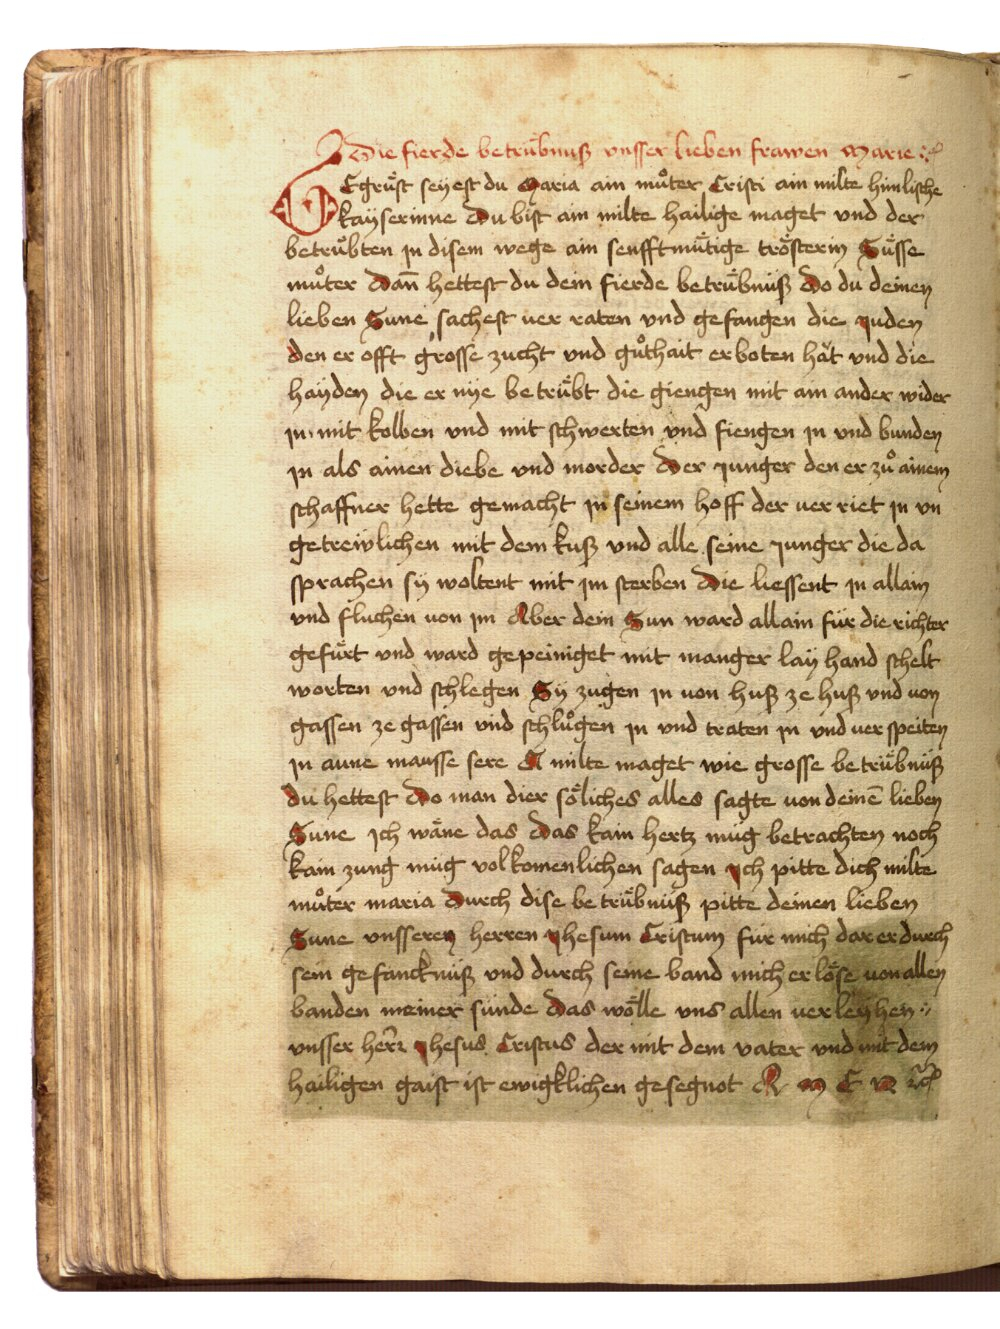 Die fierde betrübnuß vnsser lieben frawen Marie
GEgrüst seyest du Maria ain muͦter Cristi ain milte himlische
kayserinne Du bist ain milte hailige maget vnd der
betrübten jn disem wege ain senfftmüttige trösterin Süsse
muͦter Dañ hettest du dein fierde betrübnüß Do du deinen
lieben Sune sachest uer raten vnd gefangen die Juden
den er offt grosse zucht vnd guͦthait erboten hät vnd die
hayden die er nye betrübt die giengen mit ain ander wider
jn mit kolben vnd mit schwerten vnd fiengen jn vnd bunden
jn als ainen diebe vnd morder Der junger den er zuͦ ainem
schaffner hette gemacht jn seinem hoff der uer riet jn vn
getreiwlichen mit dem kuß vnd alle seine junger die da
sprachen sy woltent mit jm sterben Die liessent jn allain
vnd fluchen uon jm Aber dein Sun ward allain für die richter
gefürt vnd ward gepeiniget mit manger lay hand schelt
worten vnd schlegen Sy zugen jn uon huß ze huß vnd uon
gassen ze gassen vnd schluͦgen jn vnd traten jn vnd uer speiten
jn aune mausse sere A milte maget wie grosse betrübnüß
du hettest Do man dier söliches alles sagte uon deinē lieben
Sune Jch wäne das Das kain hertz müg betrachten noch
kain zung müg volkomenlichen sagen Jch pitte dich milte
muͦter maria Durch dise betrübnüß pitte deinen lieben
Sune vnsseren herren Jhesum Cristum für mich dar er durch
sein gefancknüß vnd durch seine band mich erlöse uon allen
banden meiner sünde Das wölle vns allen uerleyhen
vnsser herr Jhesus Cristus der mit dem vater vnd mit dem
hailigen gaist ist ewigklichen gesegnot A M E N